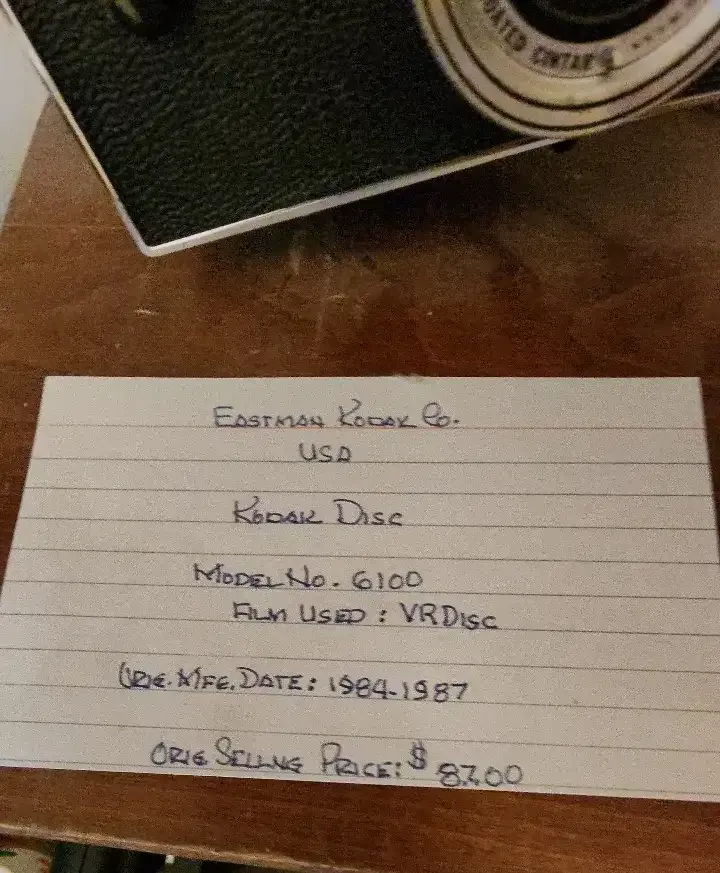 COATED CINTAR
EASTMAN KODAK CO.
USA
KODAK DISC
MODEL NO. 6100
FILM USED : VR DISC
ORIG. MFG. DATE: 1984-1987
ORIG SELLING PRICE: $ 87.00